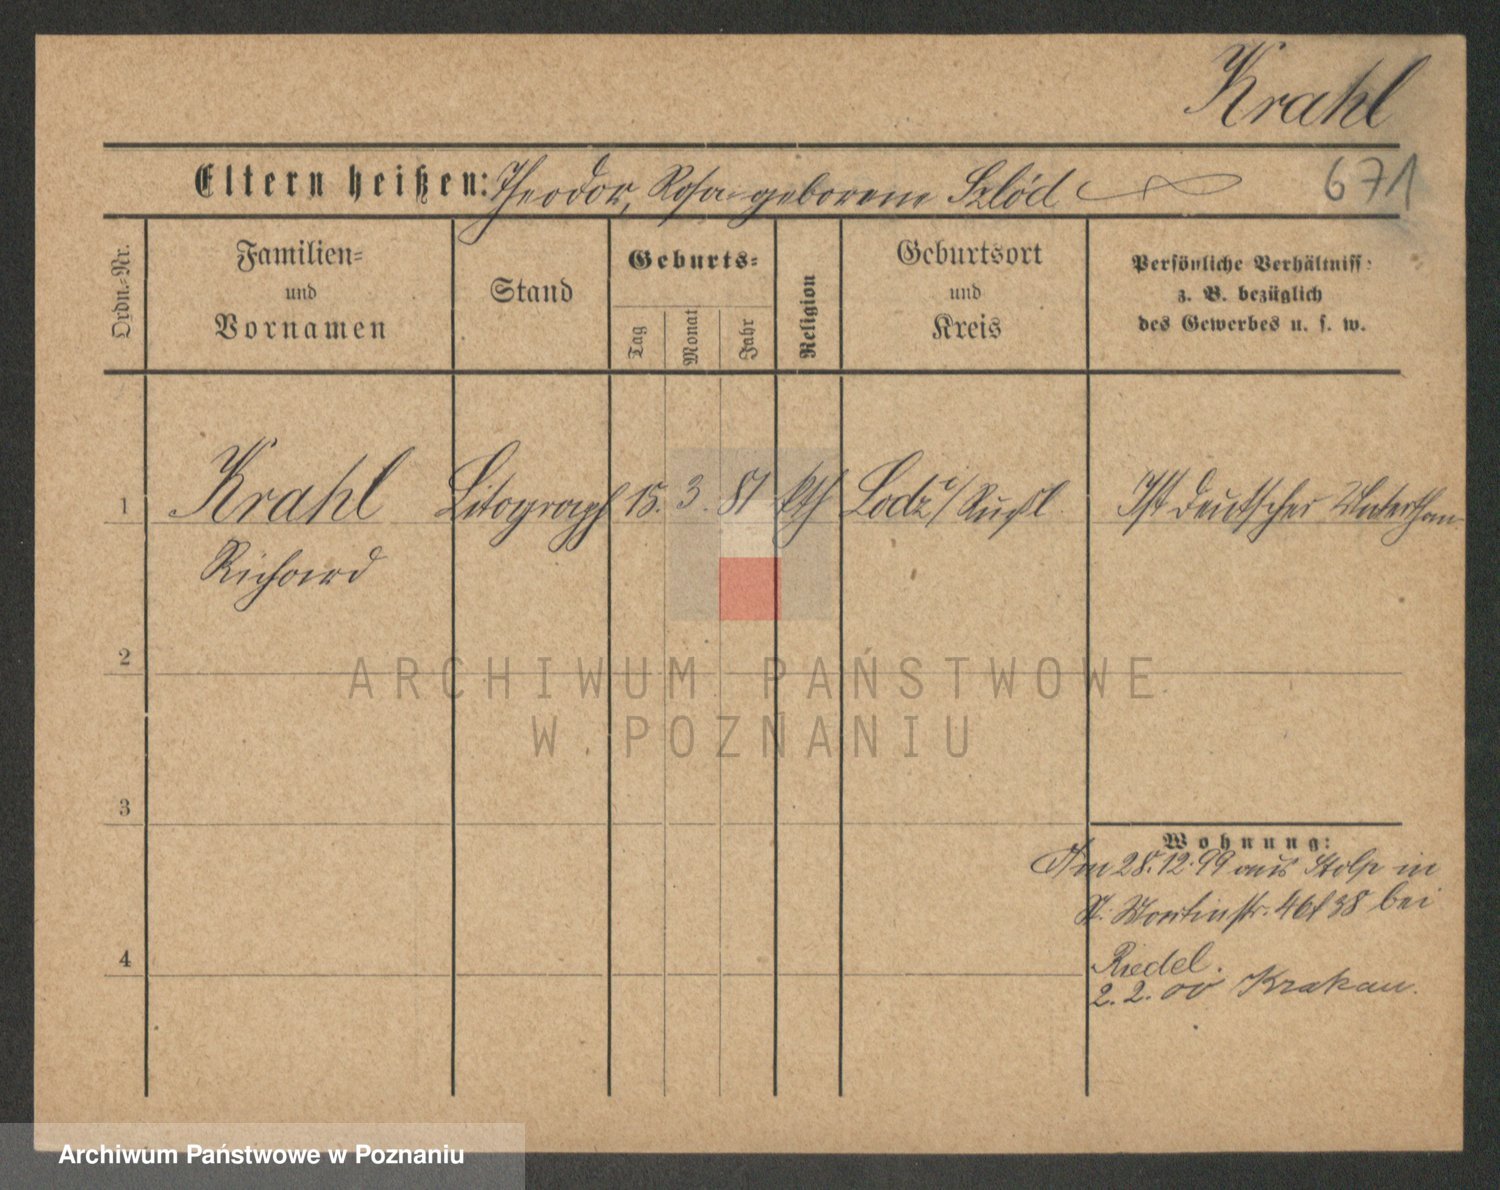 Krahl
Eltern heißen: Theodor, Rosa geborene Szlód
671
Ordn.-Nr.
Familien-
und
Vornamen
Stand
Geburts-
Tag
Monat
Jahr
Religion
Geburtsort
und
Kreis
Persönliche Verhältniss-
z. B. bezüglich
des Gewerbes u. s. w.
1 Krahl Litograph 15. 3. 81 kth Lodz i/Rußl. Ist deutscher Unterthan
Richard
2
ARCHIWUM PAŃSTWOWE
W POZNANIU
3
Wohnung:
Am 28.12.99 aus Stolp in
St. Martinstr. 46/38 bei
4
Riedel.
2.2.00 Krakau.
Archiwum Państwowe w Poznaniu